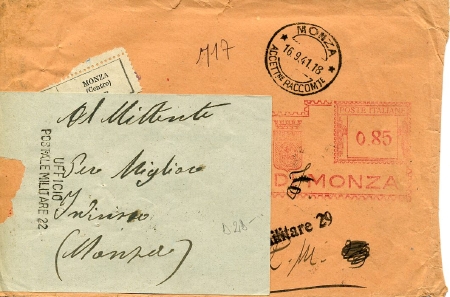 MONZA
16.9.41.18
ACCETT.NE RACCOM.TE
717
MONZA
(Centro)
POSTE ITALIANE
0.85
DI MONZA
Al Mittente
Per Miglior
Indirizzo
(Monza)
UFFICIO
POSTALE MILITARE 22
ilitare 29